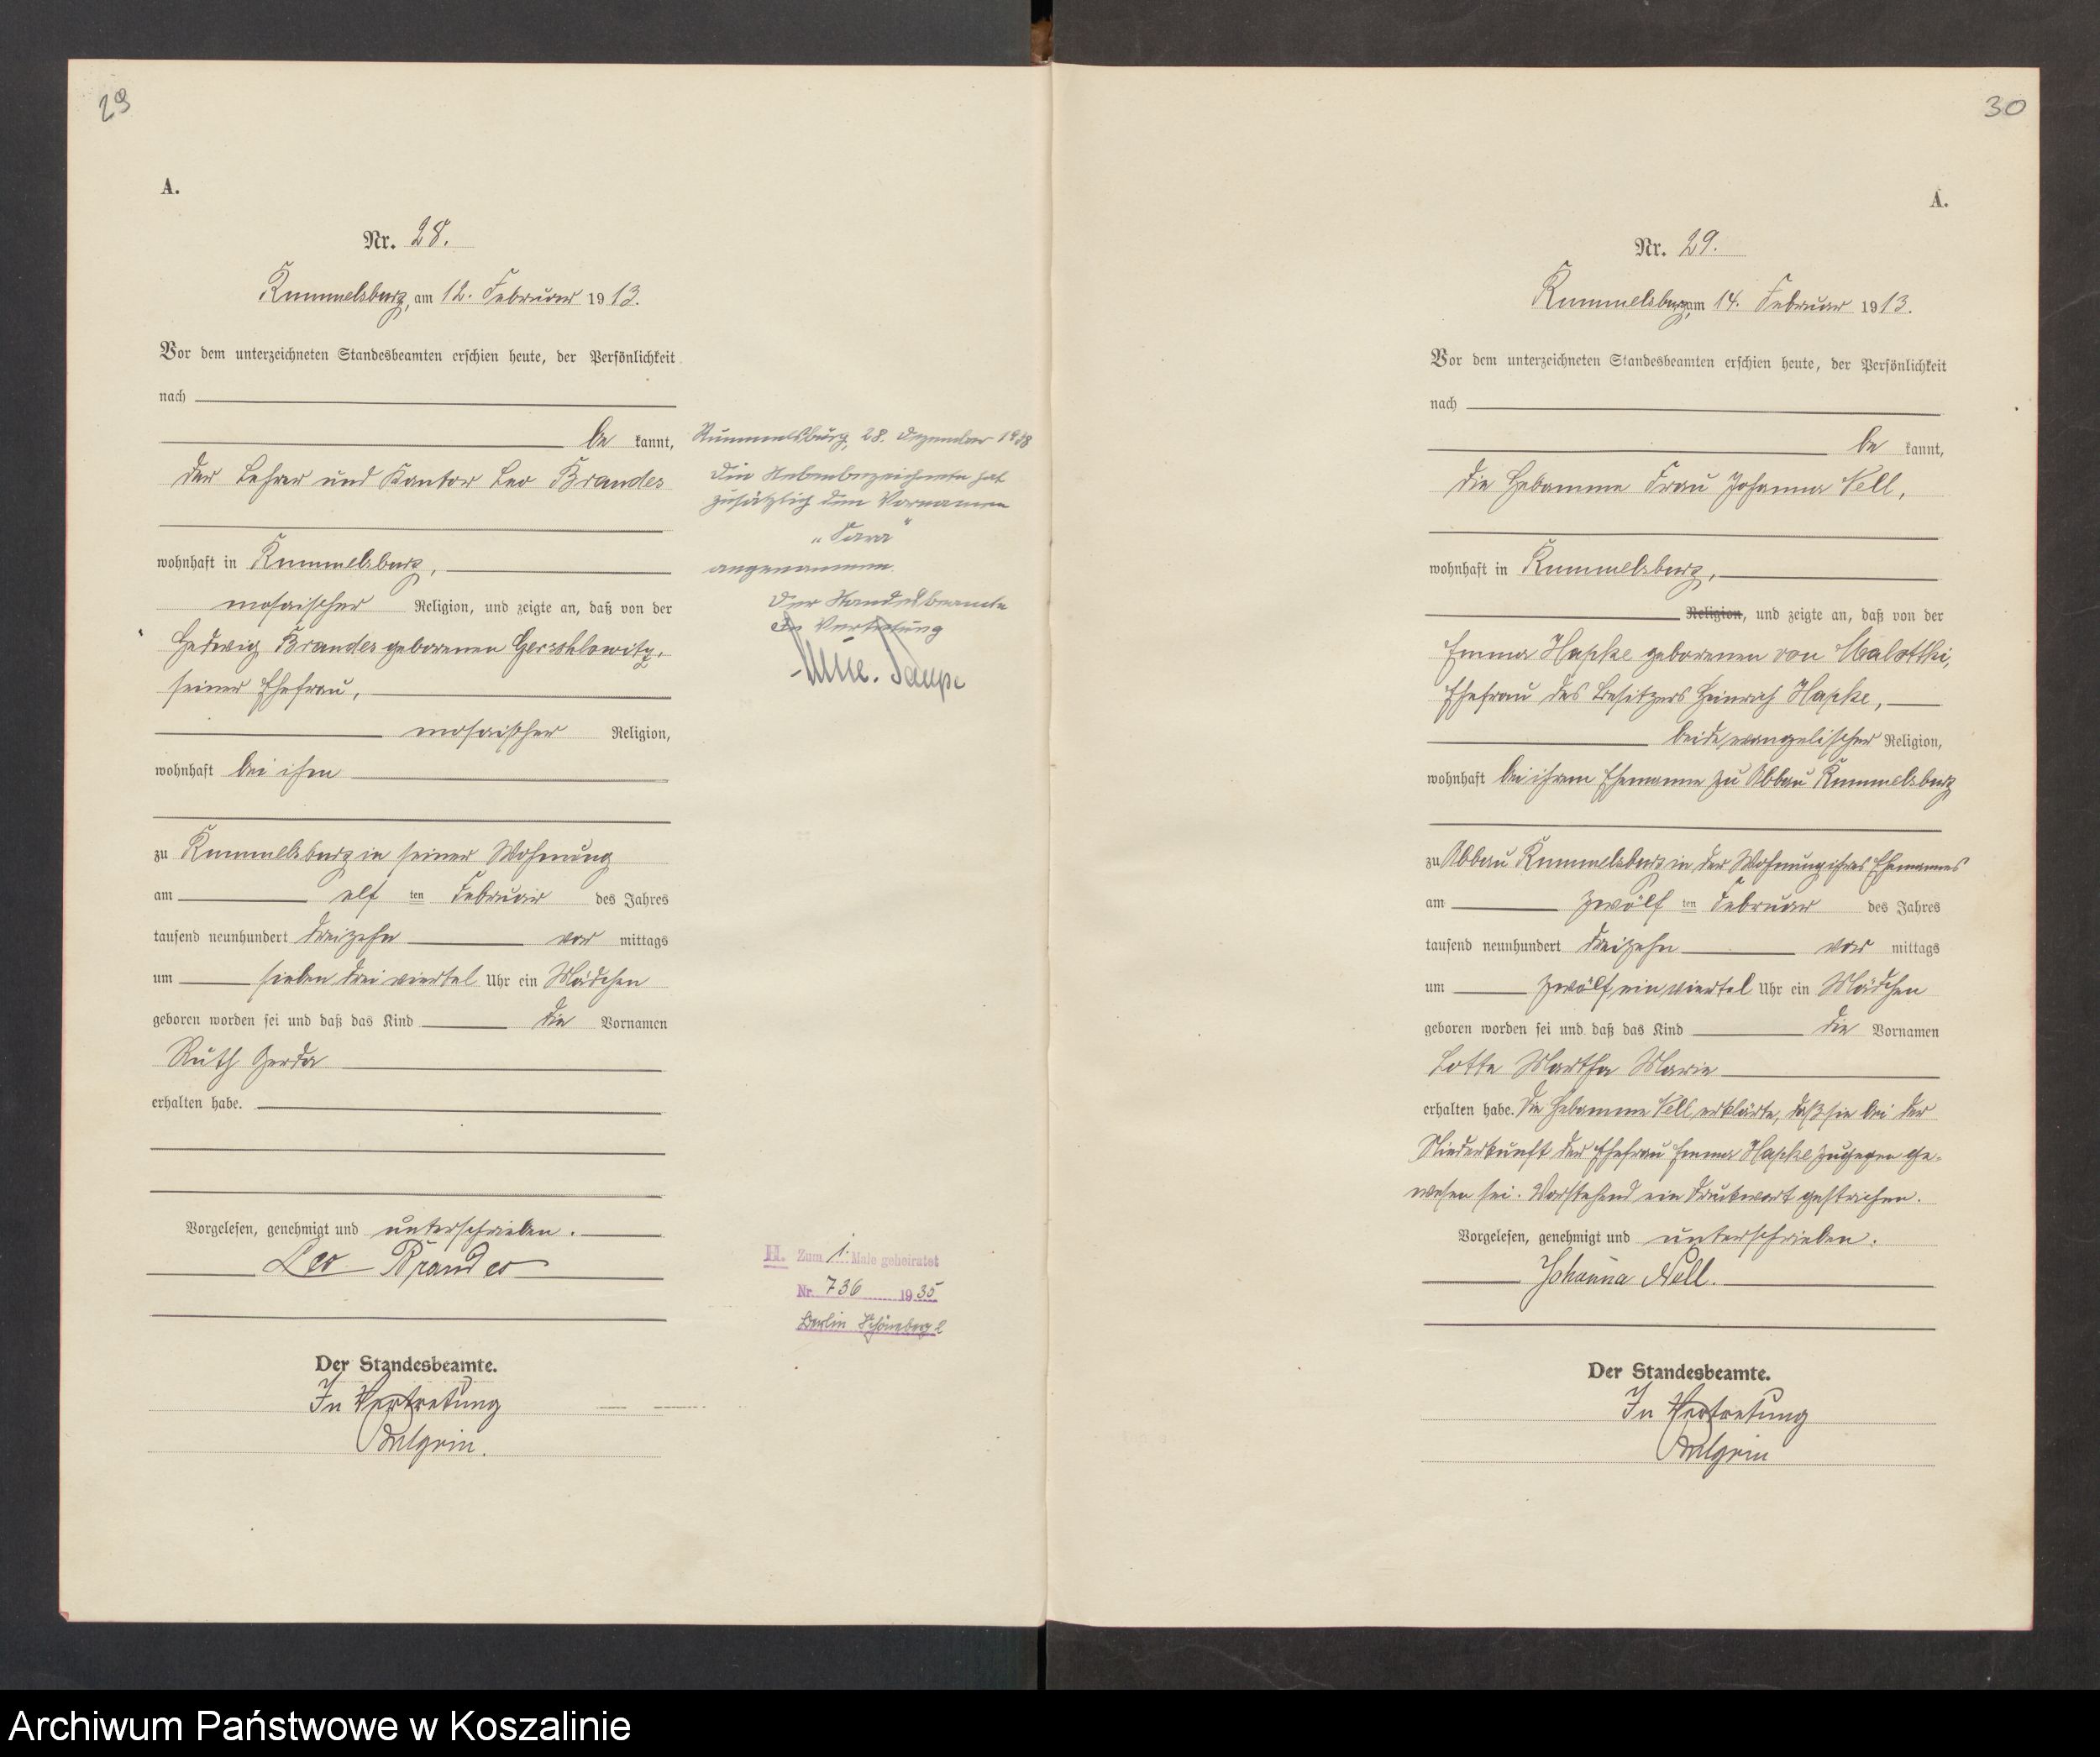 29
A.
Nr. 28.
Rummelsburg, am 12. Februar 1913.
Vor dem unterzeichneten Standesbeamten erschien heute, der Persönlichkeit
nach
be kannt,
der Lehrer und Kantor Leo Brandes
wohnhaft in Rummelsburg,
mosaischer Religion, und zeigte an, daß von der
Hedwig Brandes geborenen Gerschlowitz,
seiner Ehefrau,
mosaischer Religion,
wohnhaft bei ihm
zu Rummelsburg in seiner Wohnung
am elf ten Februar des Jahres
tausend neunhundert dreizehn vor mittags
um sieben drei viertel Uhr ein Mädchen
geboren worden sei und daß das Kind die Vornamen
Ruth Gerda
erhalten habe.
Vorgelesen, genehmigt und unterschrieben.
Leo Brandes
Der Standesbeamte.
In Vertretung
Rummelsburg, 28. Dezember 1938
Die Nebenbezeichnete hat
zusätzlich den Vornamen
„Sara"
angenommen.
Der Standesbeamte
In Vertretung
H. Zum 1. Male geheiratet
Nr. 736 1935
Berlin Schöneberg 2
30
A.
Nr. 29.
Rummelsburg, am 14. Februar 1913.
Vor dem unterzeichneten Standesbeamten erschien heute, der Persönlichkeit
nach
be kannt,
die Hebamme Frau Johanna Nell,
wohnhaft in Rummelsburg,
Religion, und zeigte an, daß von der
Emma Hapke geborenen von Malottki,
Ehefrau des Besitzers Heinrich Hapke,
beide evangelischer Religion,
wohnhaft bei ihrem Ehemanne zu Abbau Rummelsburg
zu Abbau Rummelsburg in der Wohnung ihres Ehemannes
am zwölf ten Februar des Jahres
tausend neunhundert dreizehn vor mittags
um zwölf ein viertel Uhr ein Mädchen
geboren worden sei und daß das Kind die Vornamen
Lotte Martha Marie
erhalten habe. Die Hebamme Nell erklärte, daß sie bei der
Niederkunft der Ehefrau Emma Hapke zugegen ge-
wesen sei. Vorstehend ein Druckwort gestrichen.
Vorgelesen, genehmigt und unterschrieben.
Johanna Nell.
Der Standesbeamte.
In Vertretung
Archiwum Państwowe w Koszalinie